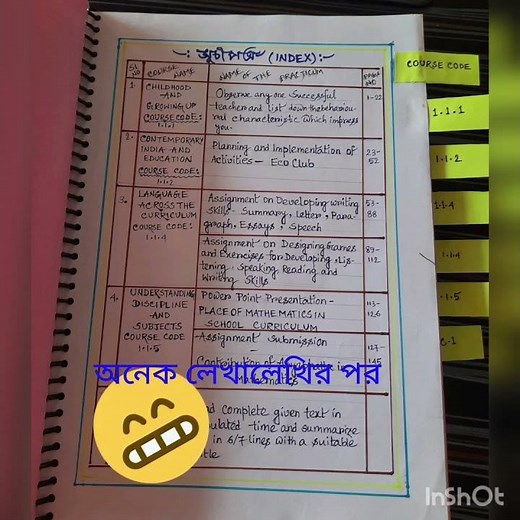 -: সূচীপত্র (INDEX):-
COURSE CODE
SL NO
COURSE NAME
NAME OF THE PRACTICUM
PAGE NO
1.
CHILDHOOD
AND
GROWING UP
COURSE CODE:
1.1.1
Observe any one Successful
teacher and list down the behaviou-
ral characteristic which impress
you.
1-22
1.1.1
2.
CONTEMPORARY
INDIA AND
EDUCATION
COURSE CODE:
1.1.2
Planning and Implementation of
Activities - Eco Club
23-
52
1.1.2
3.
LANGUAGE
ACROSS THE
CURRICULUM
COURSE CODE:
1.1.4
Assignment on Developing writing
Skills - Summary, Letter, Para-
graph, Essays, Speech
53-
88
1.1.4
Assignment on Designing Games
and Exercises for Developing Lis-
tening, Speaking, Reading and
Writing Skills
89-
112
1.1.4
4.
UNDERSTANDING
DISCIPLINE
AND
SUBJECTS
COURSE CODE
1.1.5
Power Point Presentation -
PLACE OF MATHEMATICS IN
SCHOOL CURRICULUM
113-
126
1.1.5
Assignment Submission
-
Contribution of in
Mathematics
127-
145
C.1
অনেক লেখালেখির পর
complete given text in
time and summarize
in 6/7 lines with a suitable
InShOt